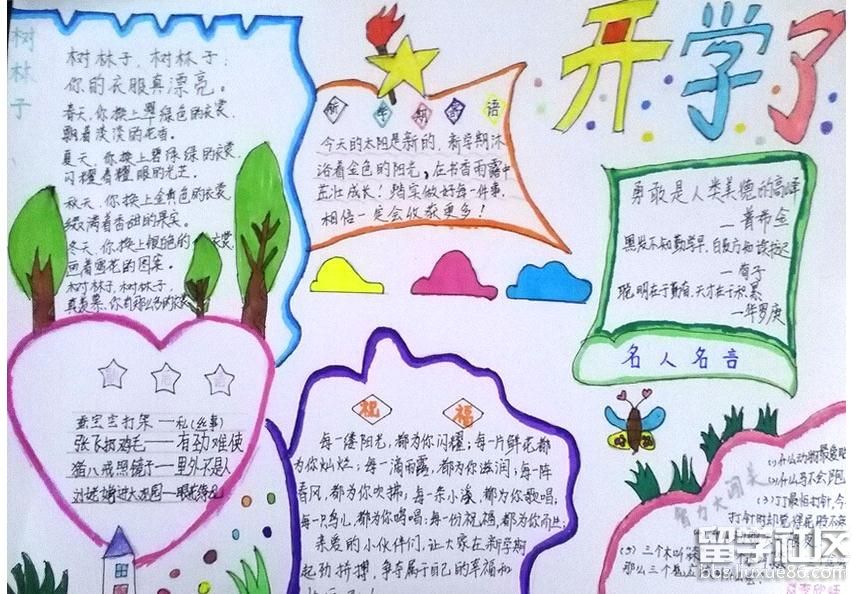 开学了
树林子
树林子，树林子，
你的衣服真漂亮。
春天，你换上翠绿色的衣裳，
飘着淡淡的花香。
夏天，你换上碧绿绿的衣裳，
闪耀着耀眼的光芒。
秋天，你换上金黄色的衣裳，
缀满着香甜的果实。
冬天，你换上银色的衣裳，
画着雪花的图案。
树林子，树林子，
新年期寄语
今天的太阳是新的，新学期沐
浴着金色的阳光，在书香雨露中
茁壮成长！踏实做好每一件事，
相信一定会收获更多！
勇敢是人类美德的高峰
—普希金
黑发不知勤学早，白首方
—荀子
聪明在于勤奋，天才在于积累
—华罗庚
名人名言
蚕宝宝打架—私（丝事）
张飞拐鸡毛——有劲难使
猪八戒照镜子——里外不是人
祝福
每一缕阳光，都为你闪耀；每一片鲜花都
为你灿烂；每一滴雨露，都为你滋润；每一阵
春风，都为你吹拂；每一条小溪，都为你歌唱，
每一只鸟儿，都为你鸣唱；每一份祝福，都为你而
亲爱的小伙伴们，让大家在新学期
起劲拼搏，争夺属于自己的幸福和
智力大闯关
(1)什么动物最爱
(2)什么马不会跑
(3)丁丁最怕打针，今
(9)三个木叫
那么三个
留学社区
bbs.liuxue86.com